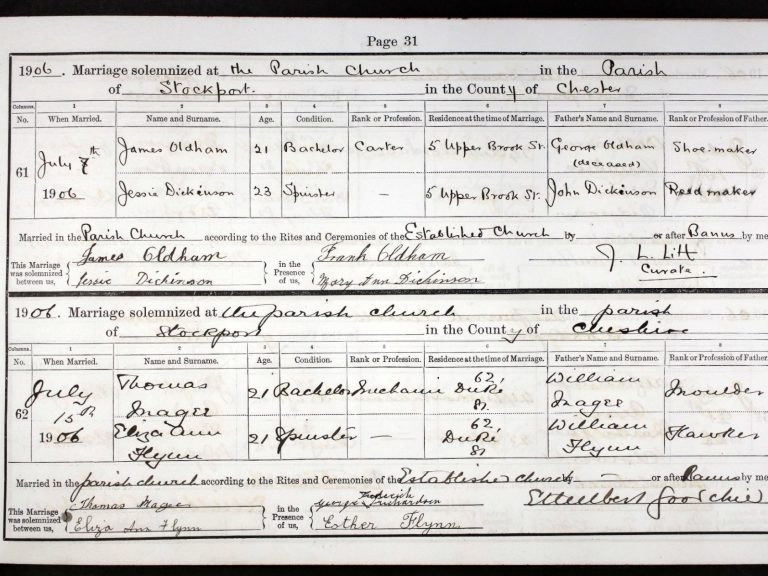 Page 31
1906. Marriage solemnized at the Parish Church in the Parish
of Stockport. in the County of Chester
Columns. 1 2 3 4 5 6 7 8
No. When Married. Name and Surname. Age. Condition. Rank or Profession. Residence at the time of Marriage. Father's Name and Surname. Rank or Profession of Father.
61 July 7th 1906 James Oldham 21 Bachelor Carter 5 Upper Brook St. George Oldham (deceased) Shoe-maker
Jessie Dickinson 23 Spinster — 5 Upper Brook St. John Dickinson Reed maker
Married in the Parish Church according to the Rites and Ceremonies of the Established Church by or after Banns by me
This Marriage was solemnized between us, James Oldham in the Presence of us, Frank Oldham J. L. Litt
Jessie Dickinson Mary Ann Dickinson Curate.
1906. Marriage solemnized at the parish church in the parish
of Stockport in the County of Cheshire
Columns. 1 2 3 4 5 6 7 8
No. When Married. Name and Surname. Age. Condition. Rank or Profession. Residence at the time of Marriage. Father's Name and Surname. Rank or Profession of Father.
62 July 15th 1906 Thomas Magee 21 Bachelor 62, Duke St. William Magee Moulder
Eliza Ann Flynn 21 Spinster — 62, Duke St William Flynn Hawker
Married in the parish church according to the Rites and Ceremonies of the Established church by — or after Banns by me
This Marriage was solemnized between us, Thomas Magee in the Presence of us, George Frederick Richardson
Eliza Ann Flynn Esther Flynn